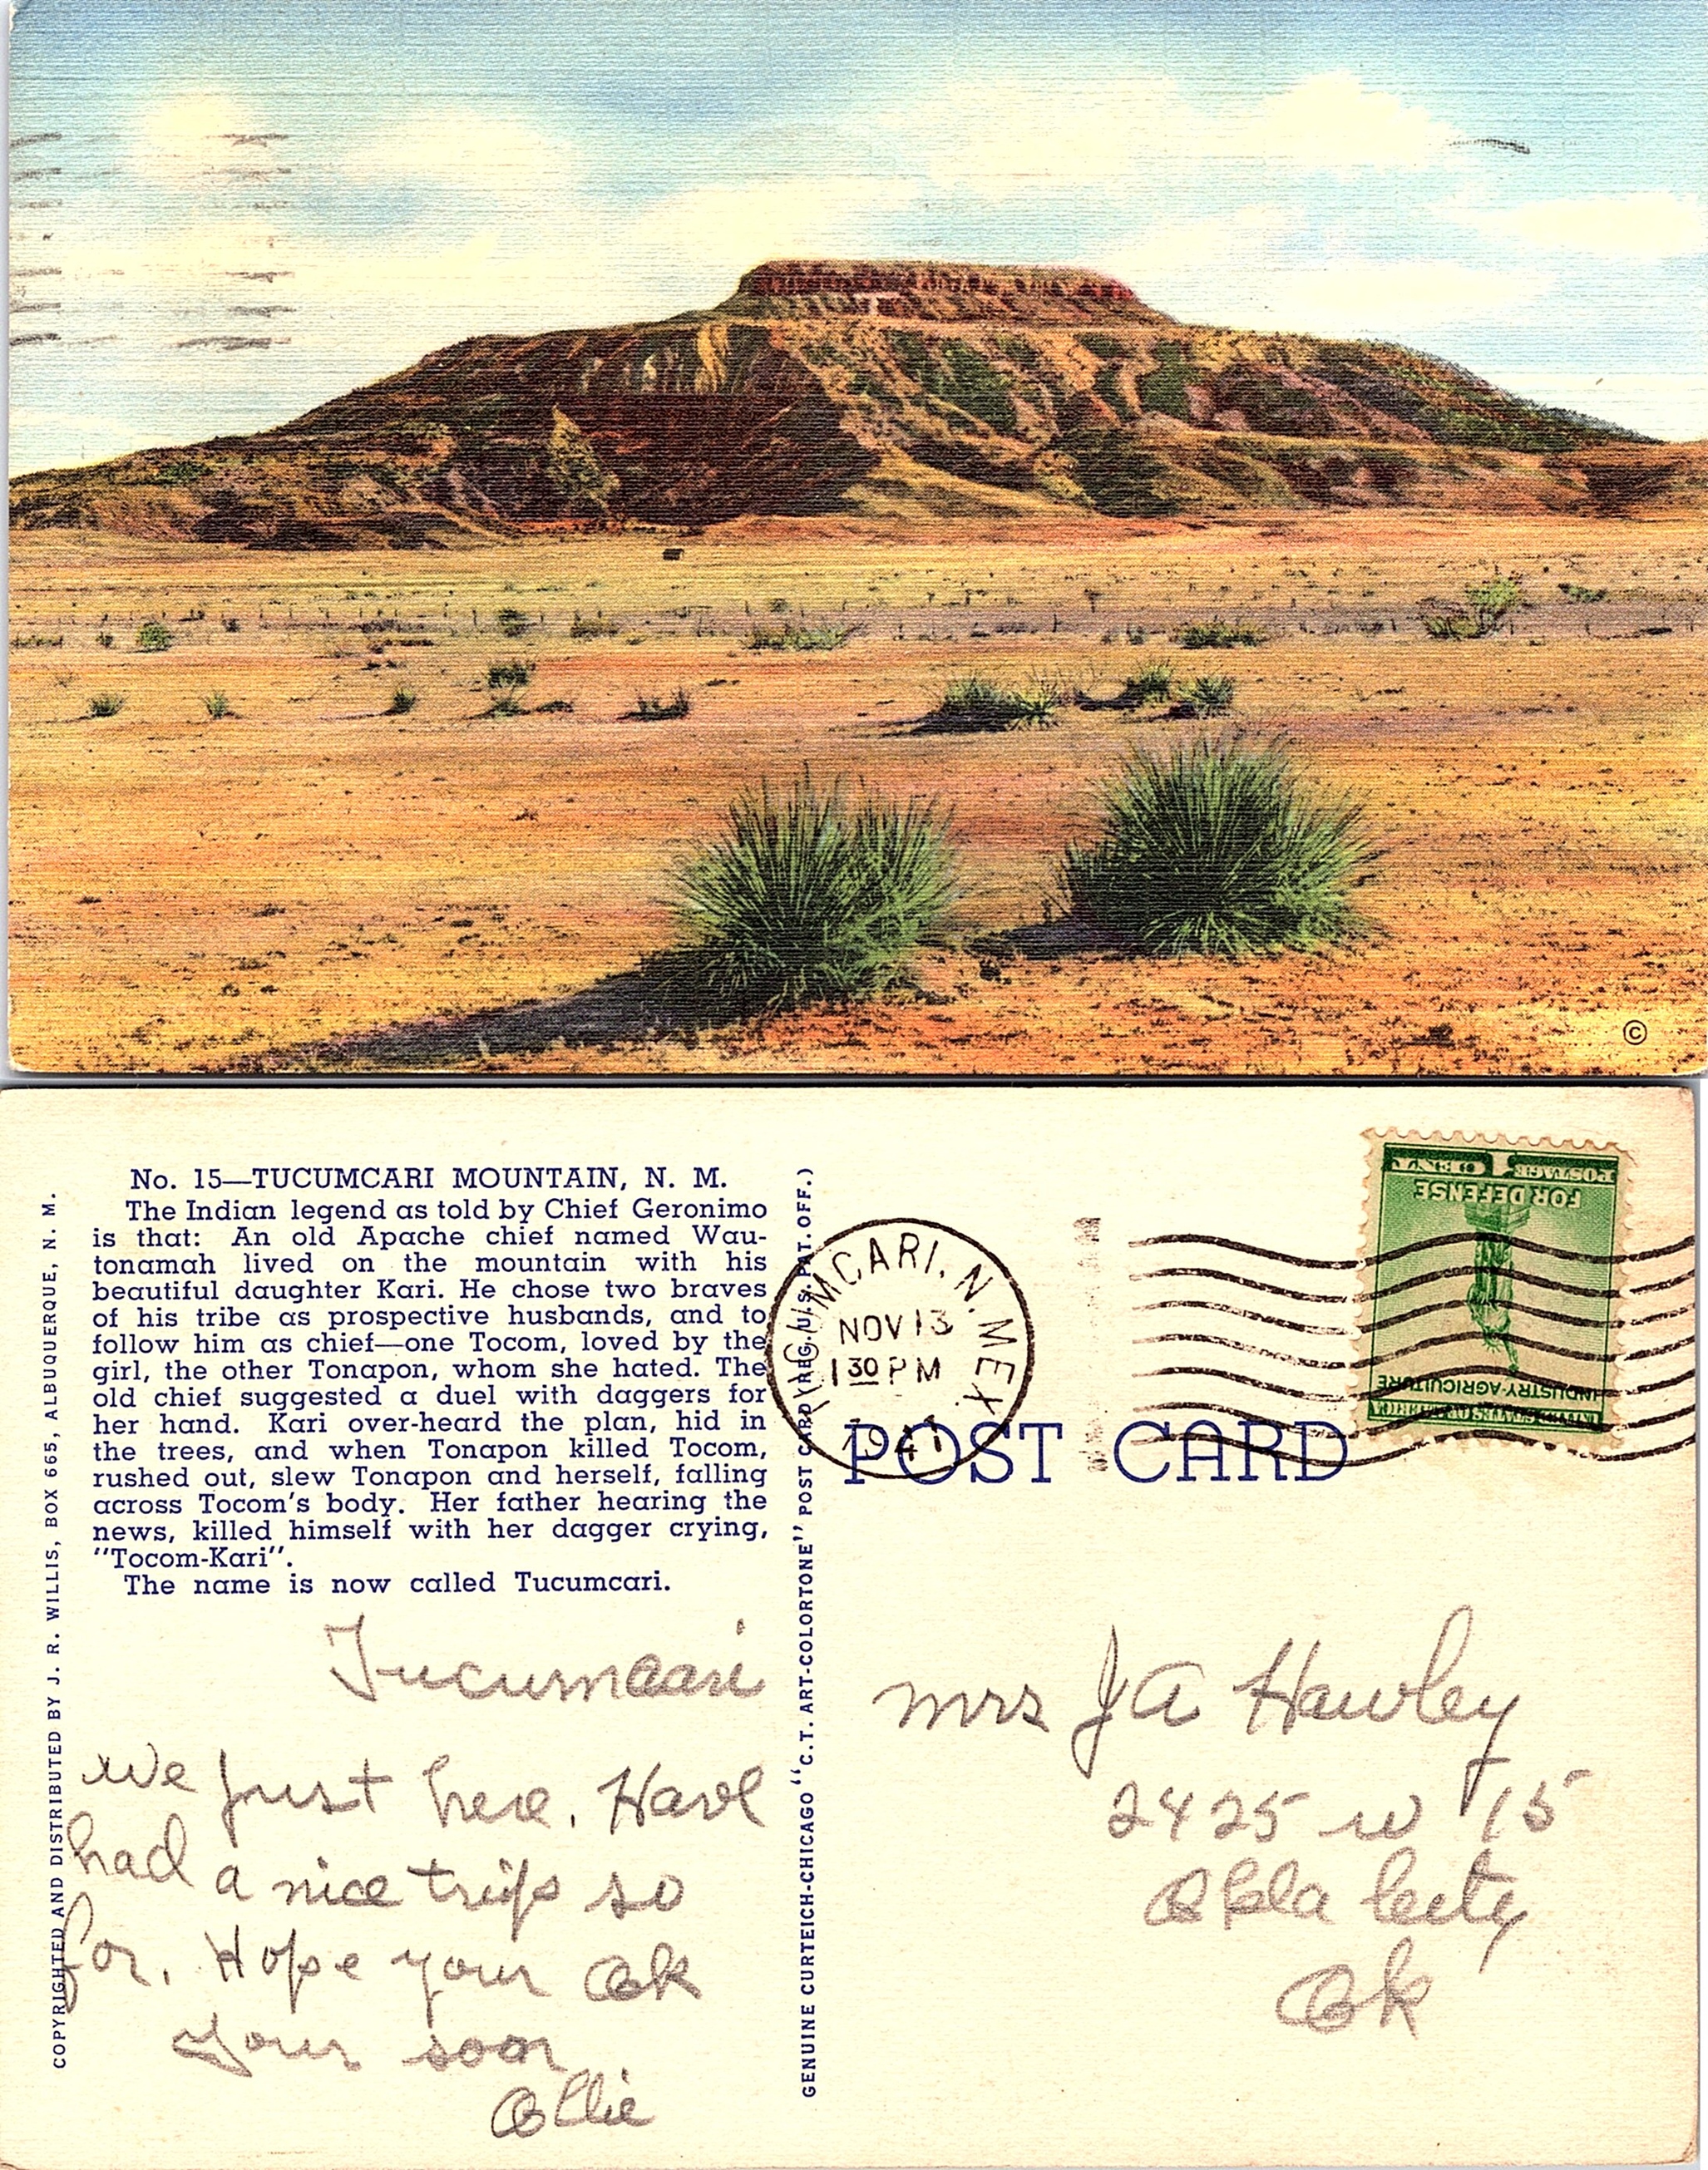 ©
No. 15—TUCUMCARI MOUNTAIN, N. M.
The Indian legend as told by Chief Geronimo
is that: An old Apache chief named Wau-
tonamah lived on the mountain with his
beautiful daughter Kari. He chose two braves
of his tribe as prospective husbands, and to
follow him as chief—one Tocom, loved by the
girl, the other Tonapon, whom she hated. The
old chief suggested a duel with daggers for
her hand. Kari over-heard the plan, hid in
the trees, and when Tonapon killed Tocom,
rushed out, slew Tonapon and herself, falling
across Tocom's body. Her father hearing the
news, killed himself with her dagger crying,
"Tocom-Kari".
The name is now called Tucumcari.
COPYRIGHTED AND DISTRIBUTED BY J. R. WILLIS, BOX 665, ALBUQUERQUE, N. M.
Tucumcari
we just here. Have
had a nice trip so
for. Hope your Ok
your soon
Ollie
GENUINE CURTEICH-CHICAGO "C. T. ART-COLORTONE" POST CARD (REG. U.S. PAT. OFF.)
TUCUMCARI, N. MEX.
NOV 13
1 30 PM
1941
POSTAGE 1 CENT
FOR DEFENSE
INDUSTRY AGRICULTURE
UNITED STATES OF AMERICA
POST CARD
Mrs JA Hawley
2425 W 15
Okla City
Ok